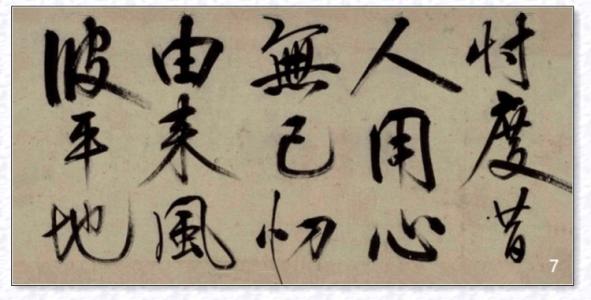 忖度昔
人用心
無已
由来風
波平地
7